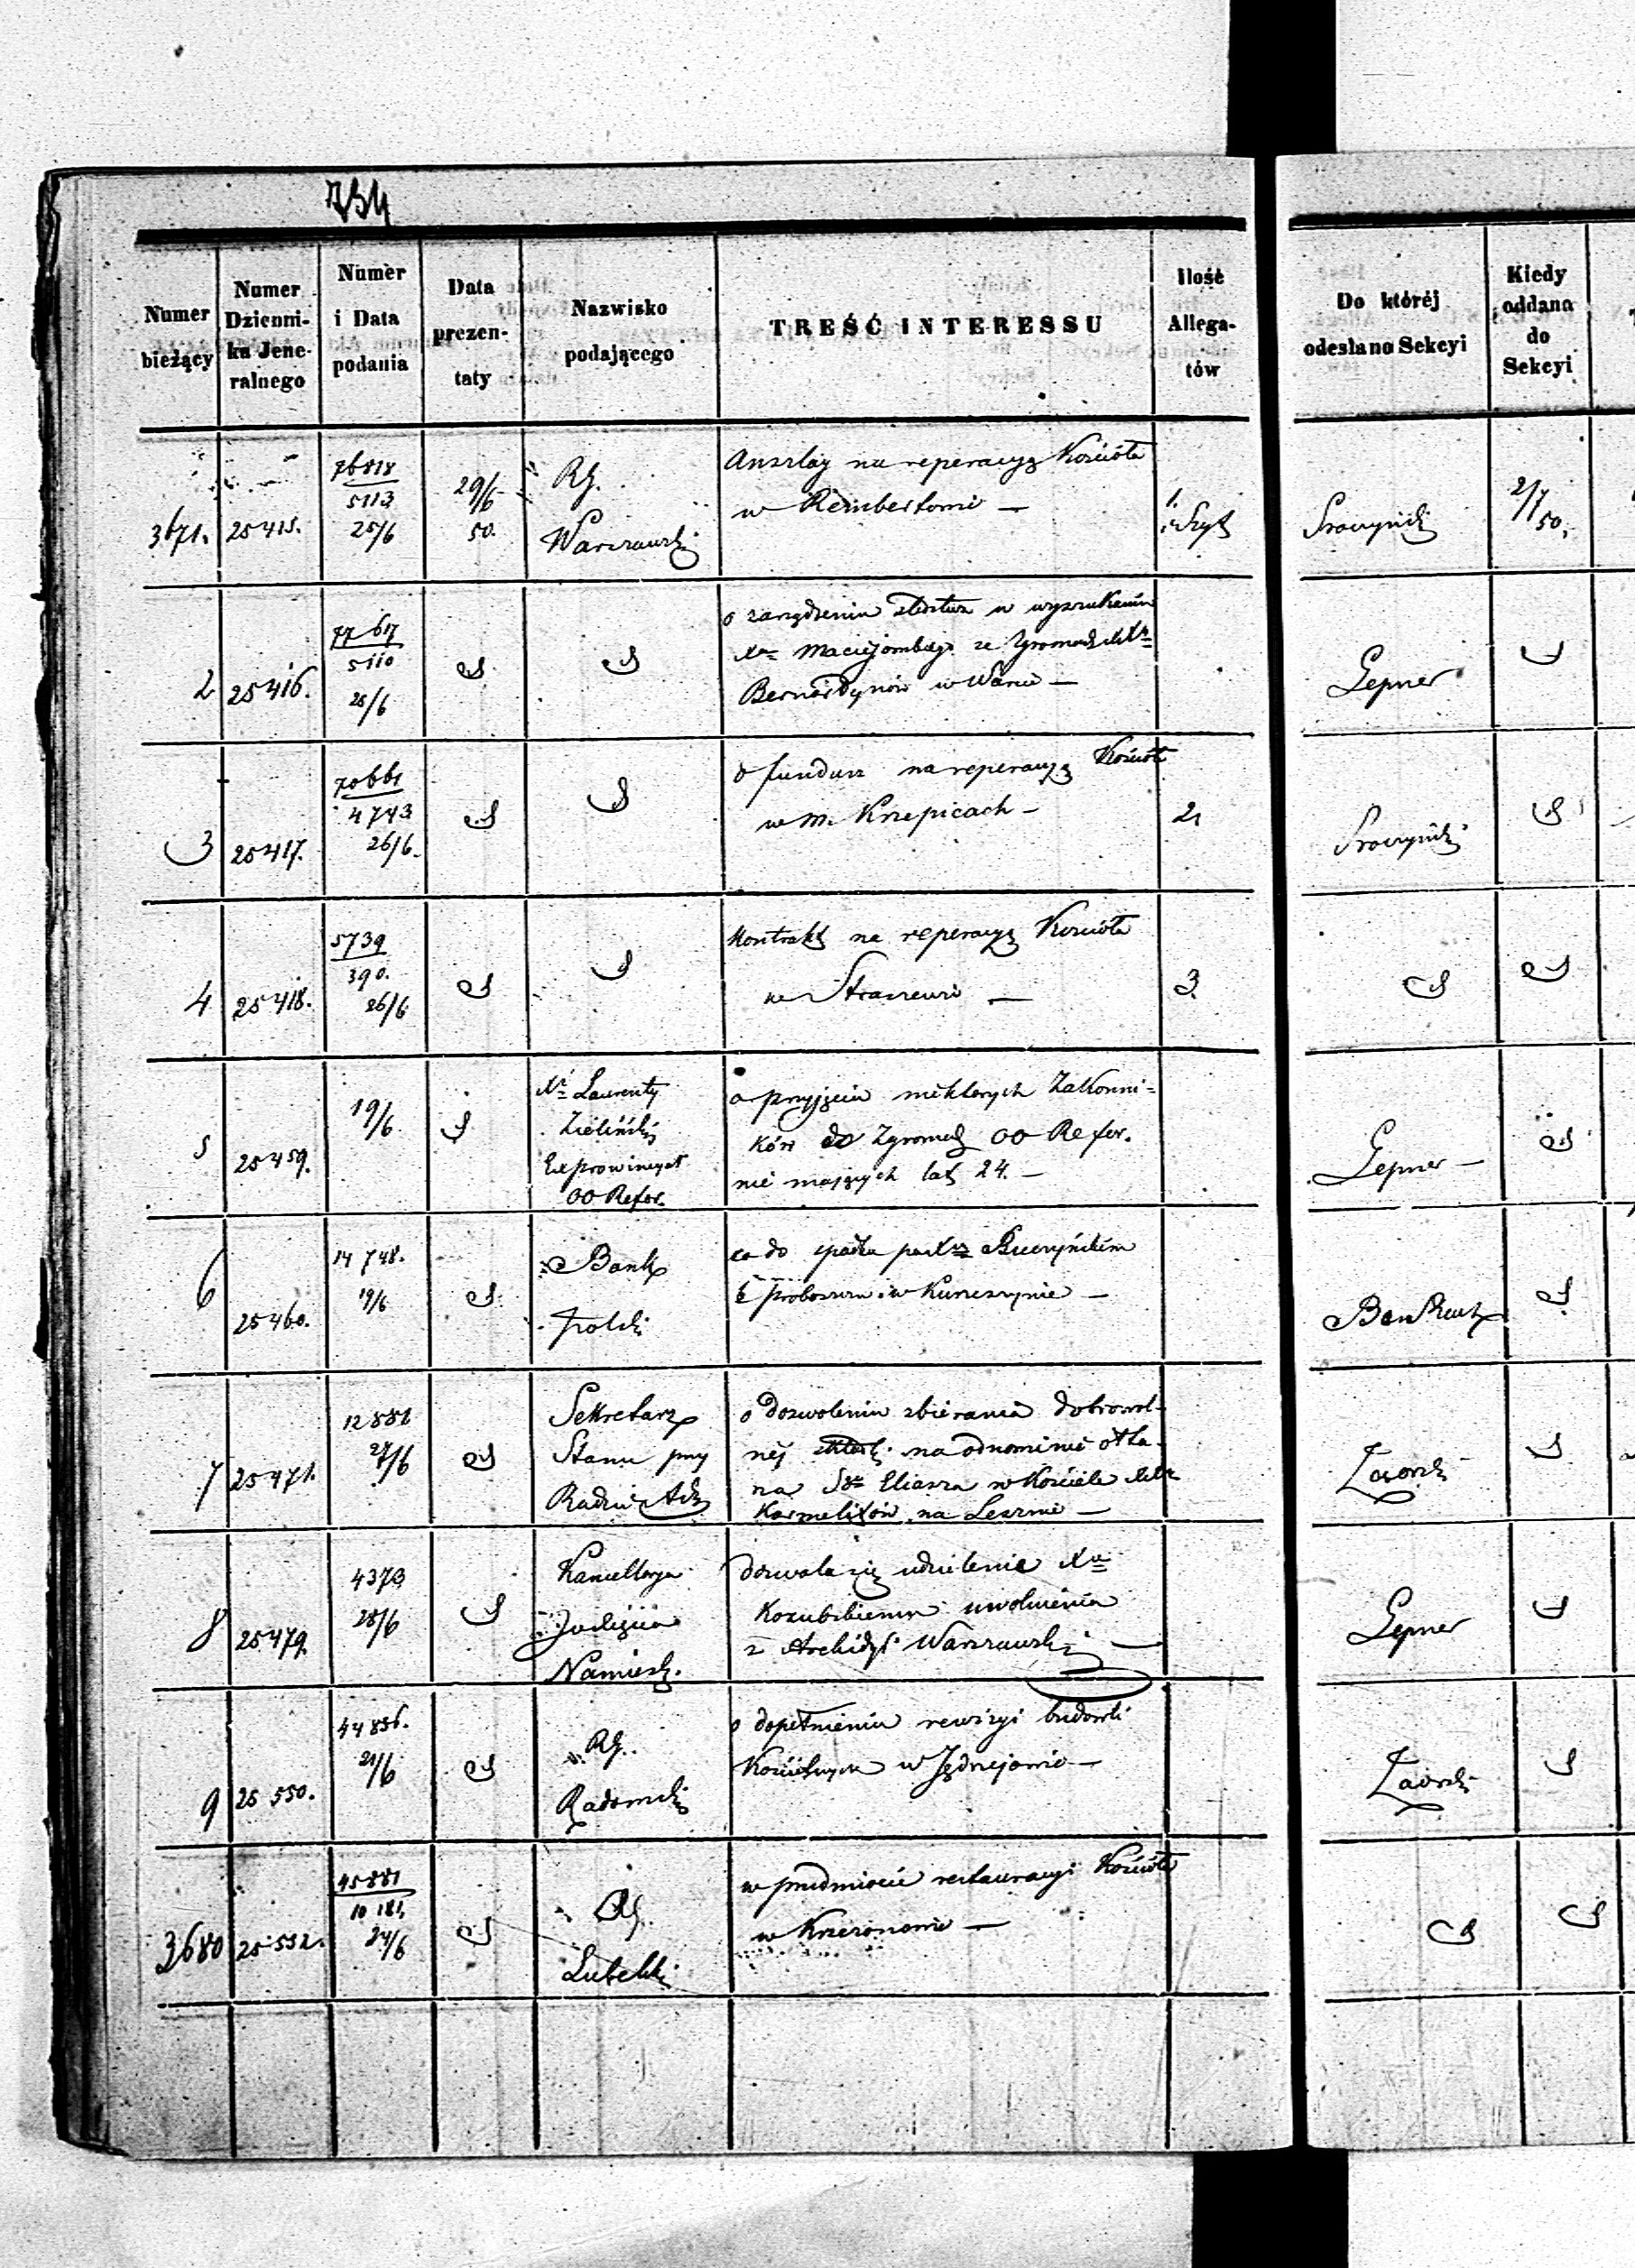 734
Numer bieżący
Numer Dzienni- ka Jene- ralnego
Numer i Data podania
Data prezen- taty
Nazwisko podającego
TREŚĆ INTERESSU
Ilość Allega- tów
Do któréj odesłano Sekcyi
Kiedy oddano do Sekcyi
3671.
25415.
76818
5113
25/6
29/6
50.
RG.
Warszawski
Anszlag na reperacyą Kościoła
w Rembertowie —
1.
2/7
50.
2
25416.
77617
5110
25/6
o zarządzenie śledztwa w wyszukaniu
Bernardynów w Warcie —
Lepner
3
25417.
70661
4743
26/6.
o fundusz na reperacyą Kościoła
w m. Krzepicach —
2
4
25418.
5739
390.
26/6
Kontrakt na reperacyą Kościoła
w Straszewie —
3.
5
25459.
19/6
Xd Laurenty
Zieliński
Exprowincyał
OO Refor.
o przyjęcie niektórych Zakonni=
ków do Zgromad OO Refor.
nie mających lat 24. —
Lepner —
6
25460.
14748.
19/6
Bank
Polski
co do spadku po
7
25471.
12881
27/6
Sekretarz
Stanu przy
Radzie Ad
o dozwolenie zbierania dobrowol-
néj składki na odnowienie ołta-
rza Sgo Eliasza w Kościele
Karmelitów na Lesznie —
8
25479.
4373
28/6
Kancellarya
Namiest.
dozwala się udzielenie Xu
uwolnienia
z Archidyi Warszawski —
Lepner
9
25550.
44836.
21/6
RG.
Radomski
o dopełnienie rewizyi budowli
Kościelnych w Jędrzejowie —
3680
25552.
45881
10181.
24/6
RG.
Lubelski
w przedmiocie restauracyi Kościoła
w Krzczonowie —